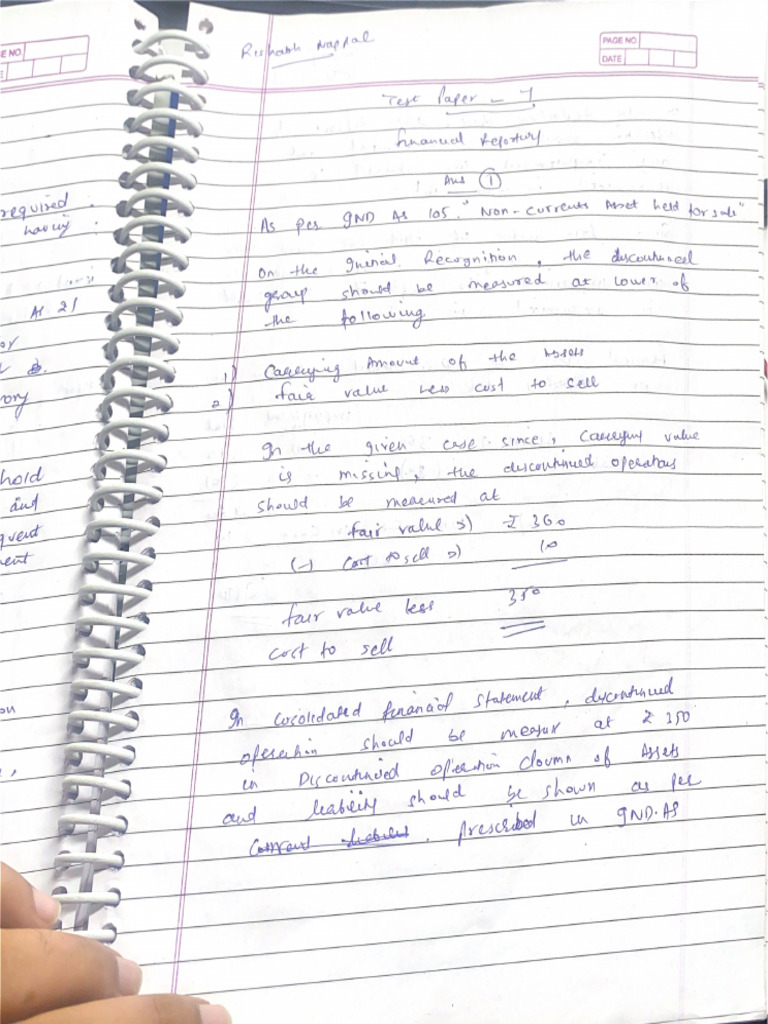 E NO.
E
required.
having.
As 21
or
ory
hold
and
quent
ent
on
Rishabh Nagpal
PAGE NO.
DATE
Test Paper - 1
Financial Reporting
Ans ①
As per IND AS 105. "Non-currents Asset held for sale"
On the Initial Recognition, the discontinued
group should be measured at lower of
the following
1) Carrying Amount of the Assets
2) fair value less cost to sell
In the given case since, carrying value
is missing, the discontinued operations
should be measured at
fair value => ₹ 360
(-) cost to sell => 10
fair value less 350
cost to sell
In cosolidated financial statement, discontinued
operation should be measur at ₹ 350
in Discontinued operation cloumn of Assets
and liability should be shown as per
prescribed in IND.AS